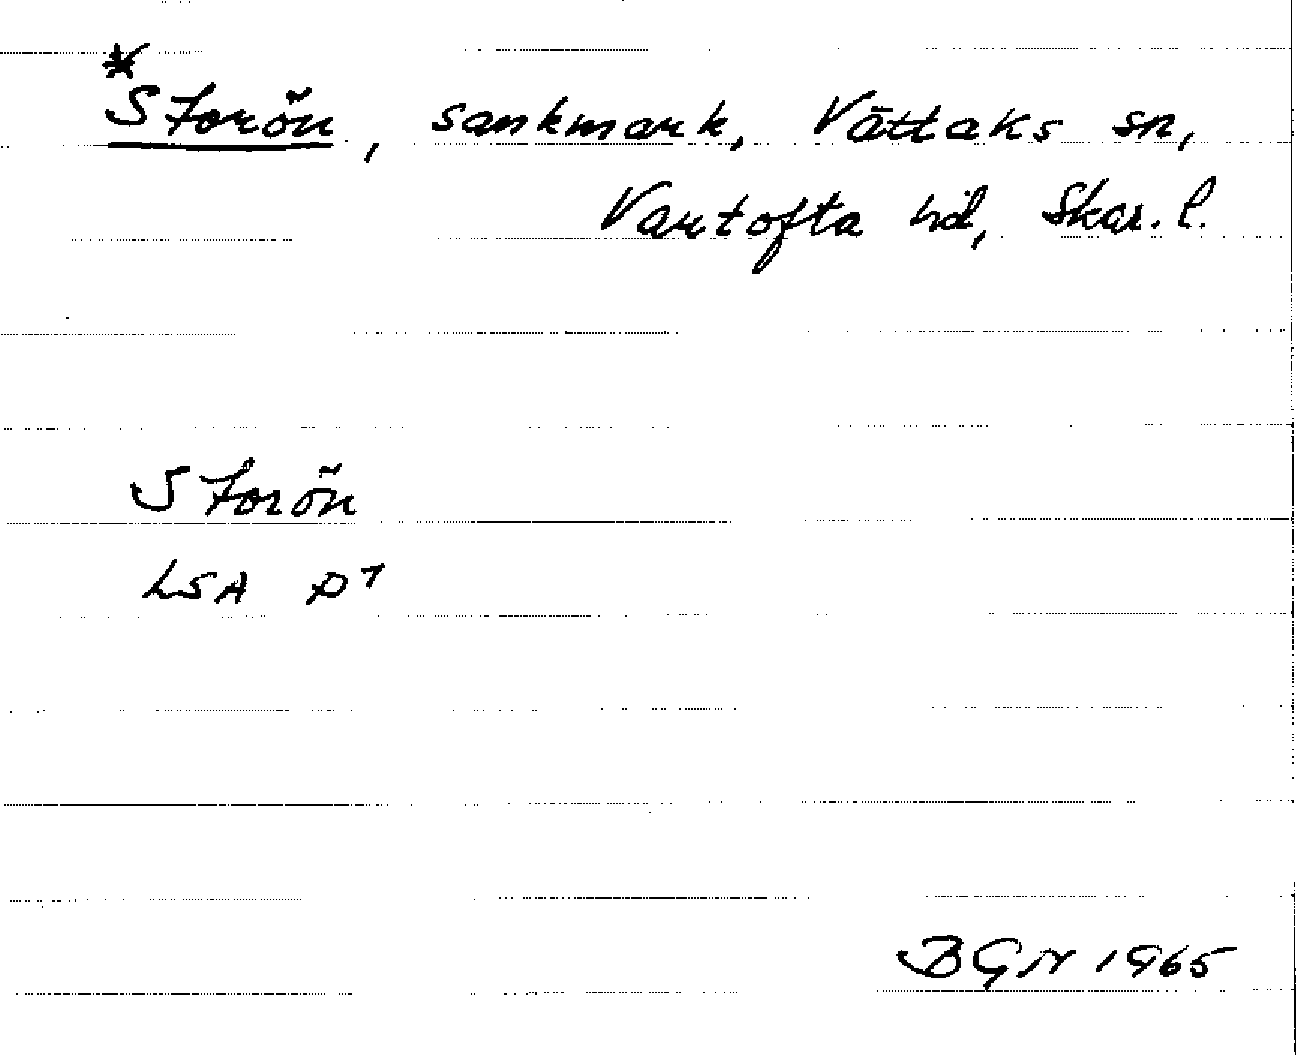 *
Storön, sankmark, Vättaks sn,
Vartofta hd, Skar. l.
Storön
LSA D7
BGN 1965